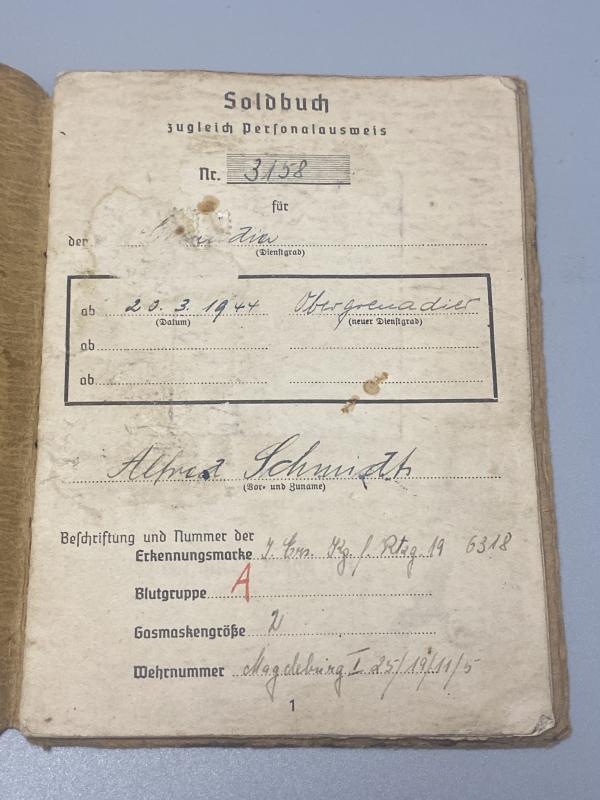 Soldbuch
zugleich Personalausweis
Nr. 3158
für
der
(Dienstgrad)
ab 20. 3. 1944 Obergrenadier
(Datum) (neuer Dienstgrad)
ab
ab
Alfred Schmidt
(Vor- und Zuname)
Beschriftung und Nummer der
Erkennungsmarke J. Ers. 19 6318
Blutgruppe A
Gasmaskengröße 2
Wehrnummer Magdeburg I 25/19/11/5
1